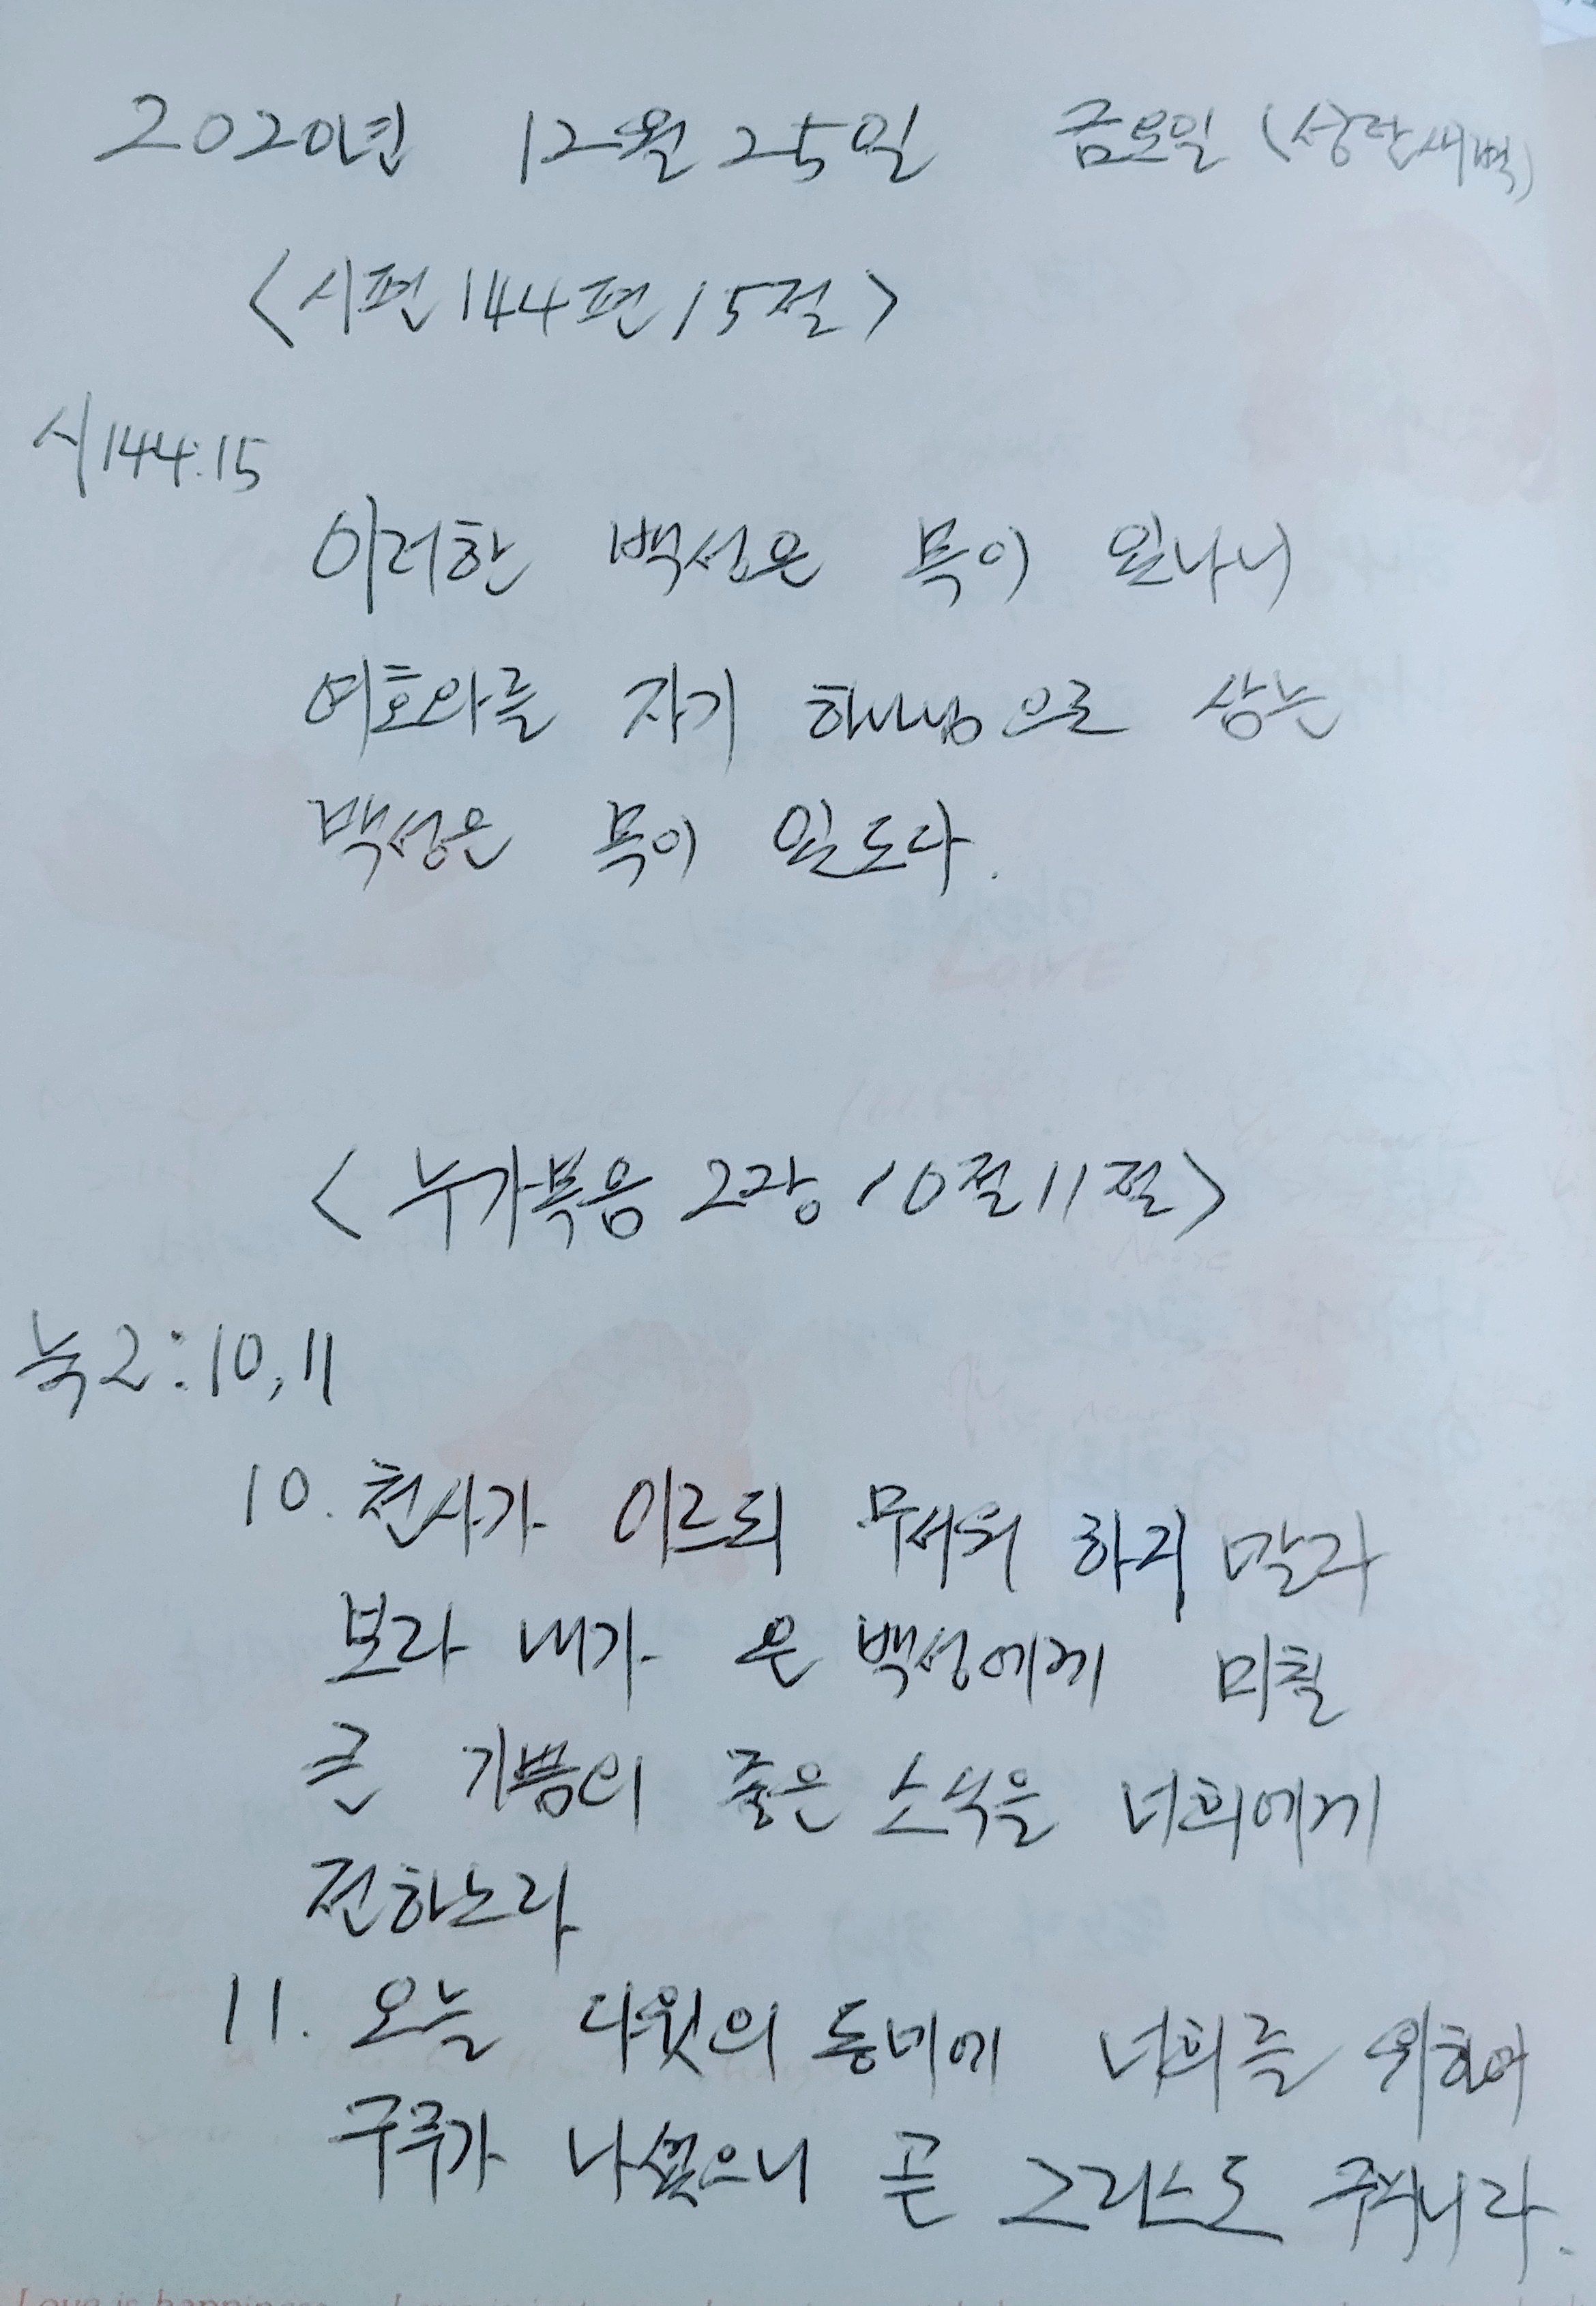 2020년 12월 25일 금요일 (성탄새벽)
<시편 144편 15절>
시144:15
이러한 백성은 복이 있나니
여호와를 자기 하나님으로 삼는
백성은 복이 있도다.
<누가복음 2장 10절 11절>
눅2:10,11
10. 천사가 이르되 무서워 하지 말라
보라 내가 온 백성에게 미칠
큰 기쁨의 좋은 소식을 너희에게
전하노라
11. 오늘 다윗의 동네에 너희를 위하여
구주가 나셨으니 곧 그리스도 주시니라.